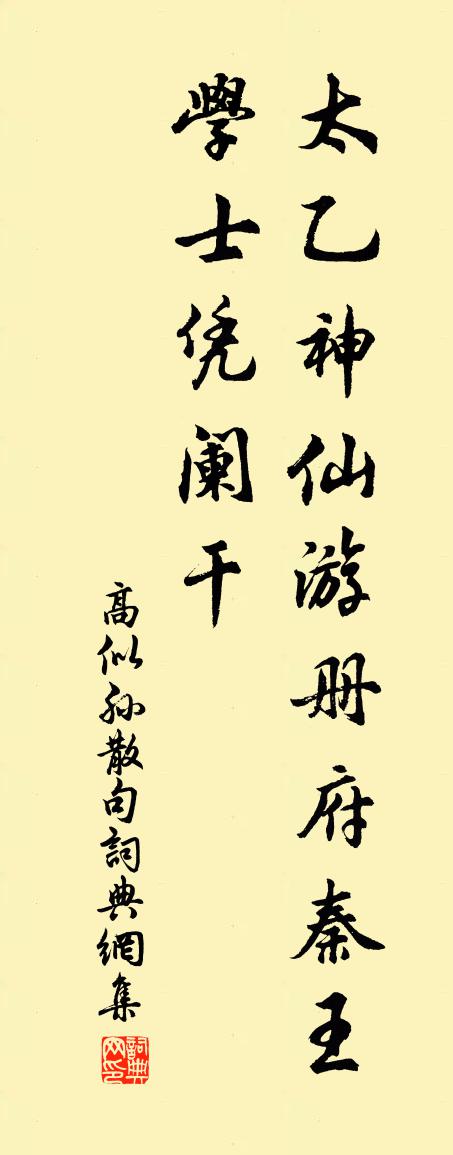 太乙神仙游册府秦王
學士凭阑干
高似孙散句詞典網集
詞典网印